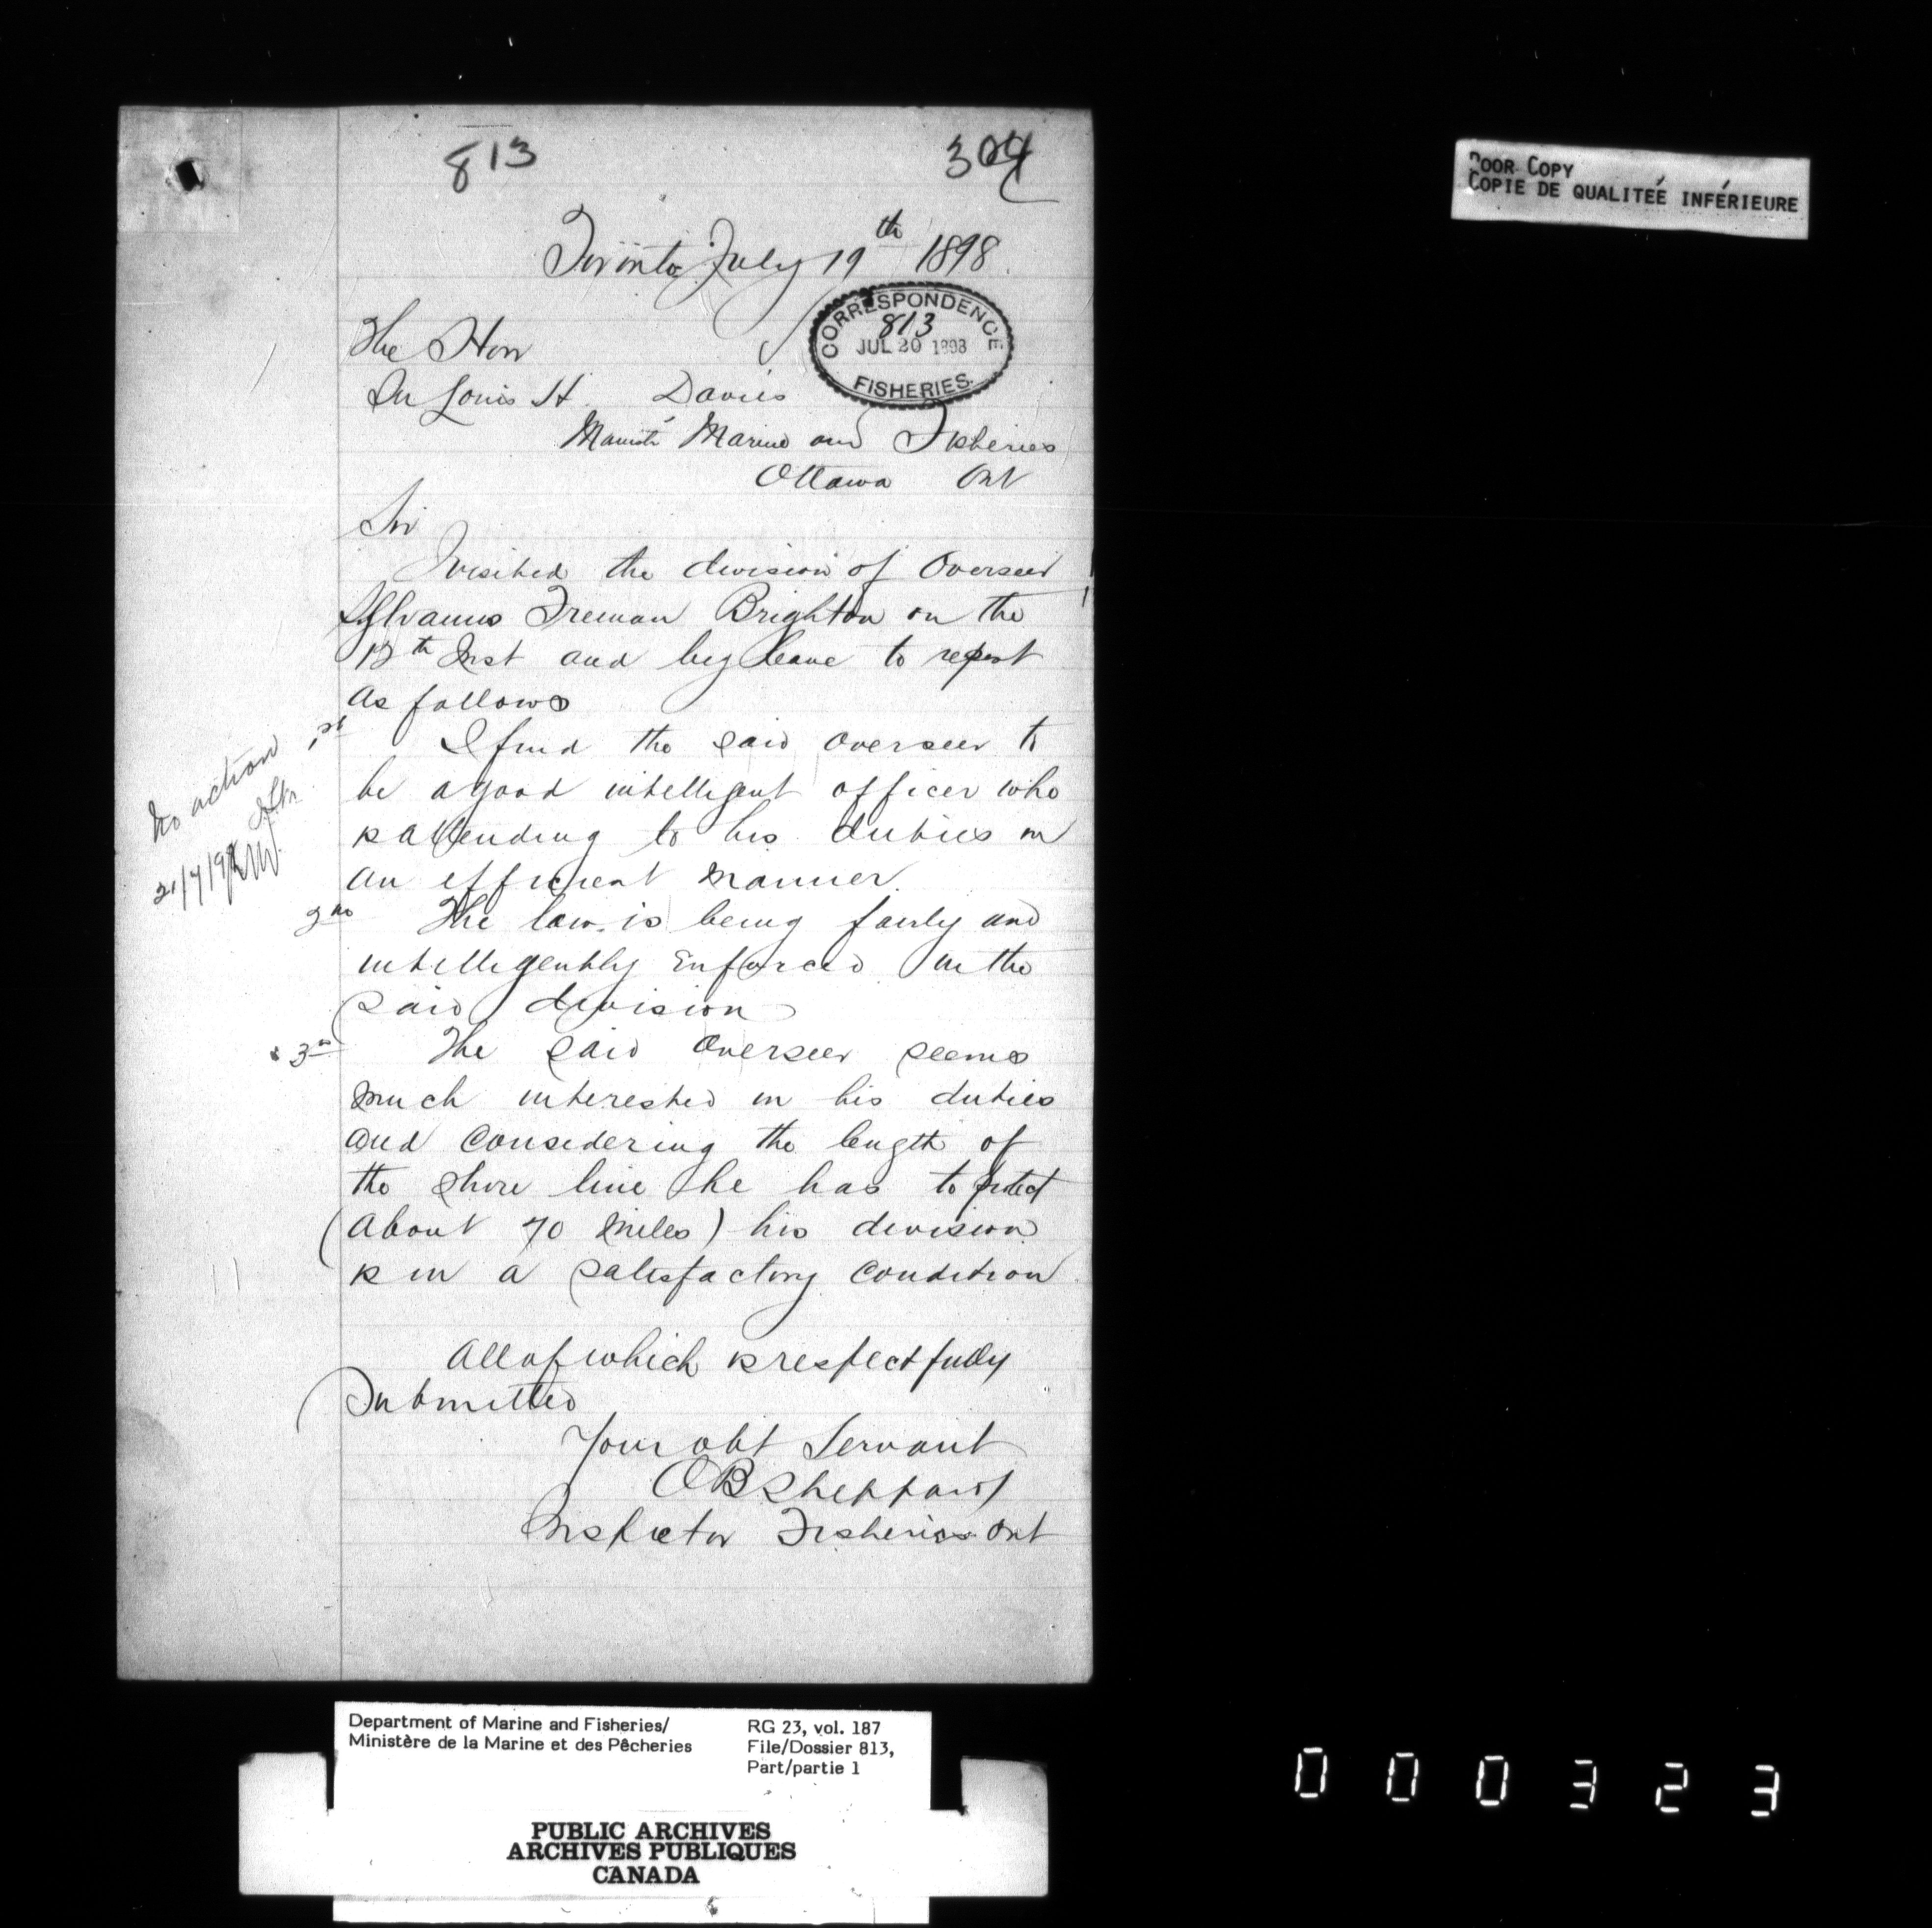 813
304
Toronto July 19th 1898
CORRESPONDENCE
813
JUL 20 1898
FISHERIES.
The Hon
Sir Louis H. Davies
Marine and Fisheries
Ottawa Ont
Sir
I visited the division of Overseer
Sylvanus Freman Brighton on the
Inst and beg leave to report
as follows
1st I find the said overseer to
be a good intelligent officer who
is attending to his duties in
an efficient manner.
2nd The law is being fairly and
intelligently Enforced in the
said division
3rd The said Overseer seems
much interested in his duties
and considering the length of
the shore line he has to protect
(about 70 miles) his division
is in a satisfactory condition
No action
All of which is respectfully
Submitted
Your obt Servant
O B Sheppard
Inspector Fisheries Ont
POOR COPY
COPIE DE QUALITEÉ INFÉRIEURE
Department of Marine and Fisheries/
Ministère de la Marine et des Pêcheries
RG 23, vol. 187
File/Dossier 813,
Part/partie 1
PUBLIC ARCHIVES
ARCHIVES PUBLIQUES
CANADA
000323